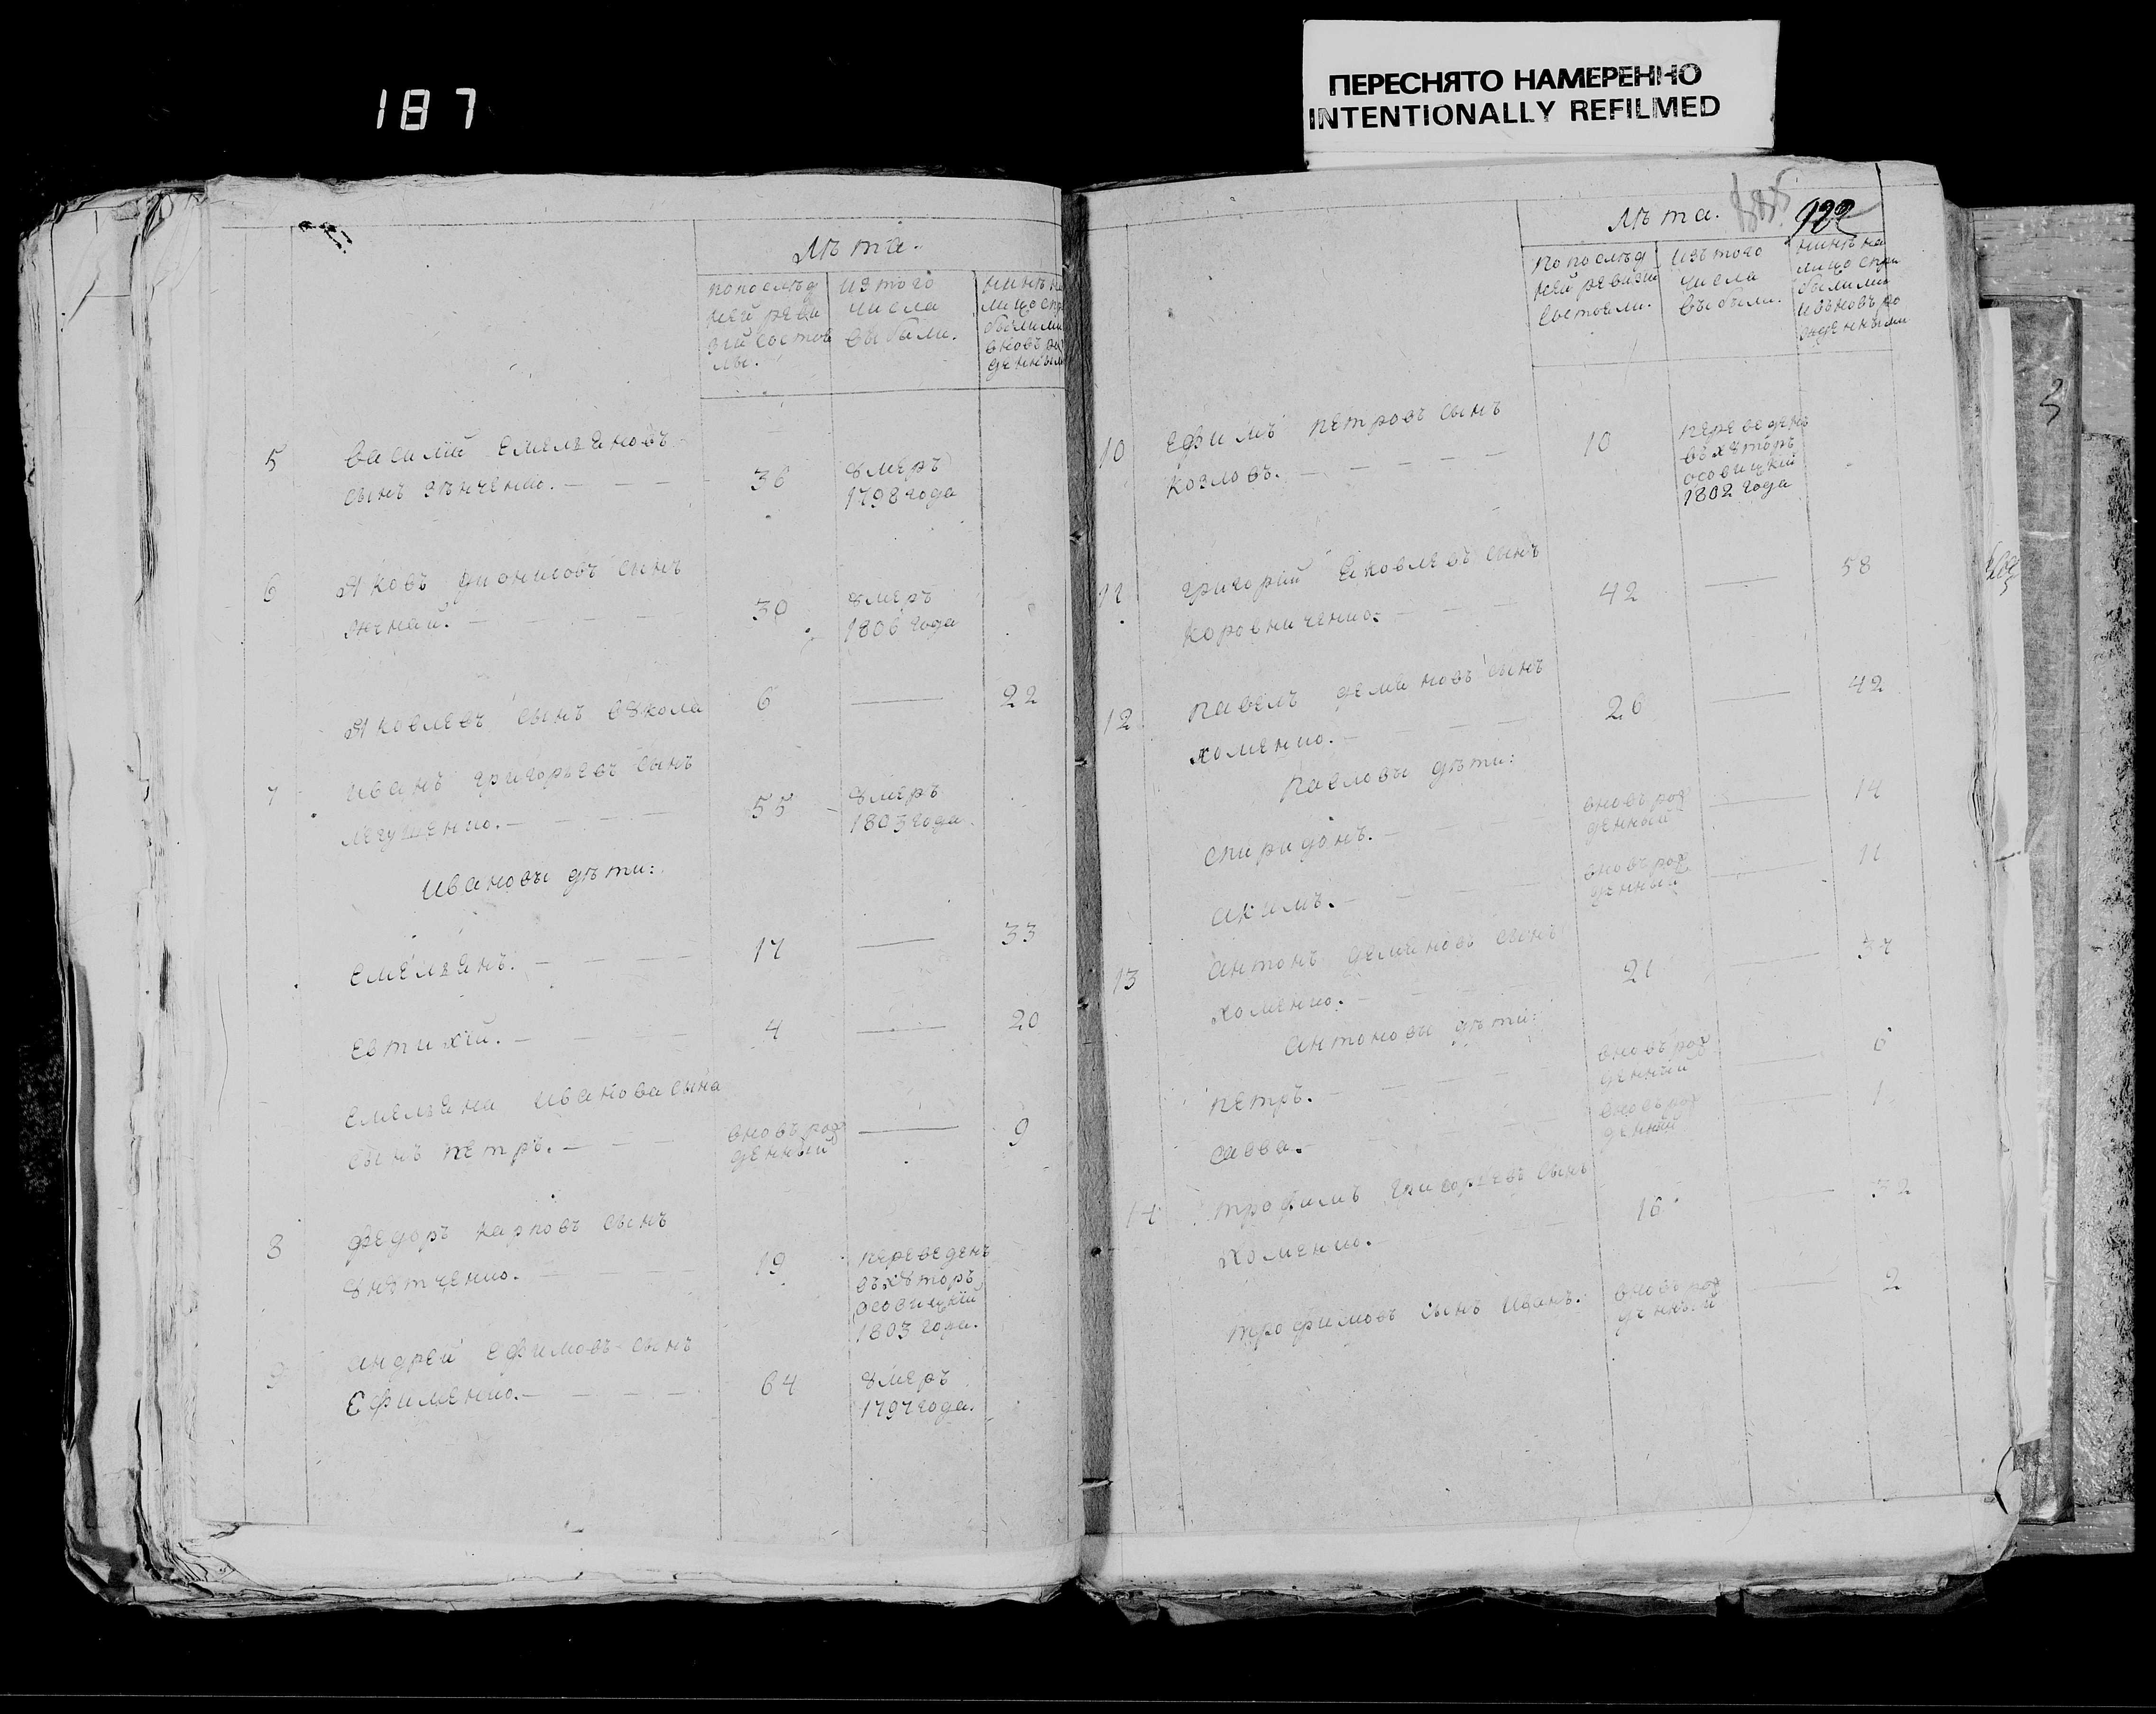 187
ПЕРЕСНЯТО НАМЕРЕННО
INTENTIONALLY REFILMED
Лѣта.
попослѣд
ней реви
зіи состоя
ли.
изтого
числа
выбыли.
нынѣ на
лицо спри
былыми
вновь ро
денным
5
василій емельяновъ
сынъ зѣнченко.
36
ꙋмеръ
1798 года
6
Яковъ дионисовъ сынъ
30
ꙋмеръ
1806 года
Яковлевъ сынъ вꙋкола
6
22
7
иванъ григорьевъ сынъ
55
ꙋмеръ
1803 года.
ивановы дѣти:
емельянъ.
17
33
евтихій.
4
20
емельяна иванова сына
сынъ петръ.
вновь рож
денный
9
8
федоръ карповъ сынъ
19
переведенъ
въ хꙋторъ
осовицкій
1803 года.
9
андрей ефимовъ сынъ
Ефименко.
64
ꙋмеръ
1797 года.
Лѣта.
122
попослѣд
ней ревизіи
состояли.
изътого
числа
выбыли.
нынѣ на
лицо спри
былыми
ивновь ро
жденными
10
ефимъ петровъ сынъ
козловъ.
10
переведенъ
въ хꙋторъ
осовицкій
1802 года
11
григорій яковлевъ сынъ
коровниченко:
42
58
12
павелъ демяновъ сынъ
хоменко.
26
42
павловы дѣти:
спиридонъ.
вновь рож
денный
14
акимъ.
вновь рож
денный
11
13
антонъ демяновъ сынъ
хоменко.
21
37
антоновы дѣти:
петръ.
вновь рож
денный
6
савва.
вновь рож
денный
1
14
трофимъ григорьевъ сынъ
хоменко.
16
32
трофимовъ сынъ иванъ.
вновь рож
денный
2